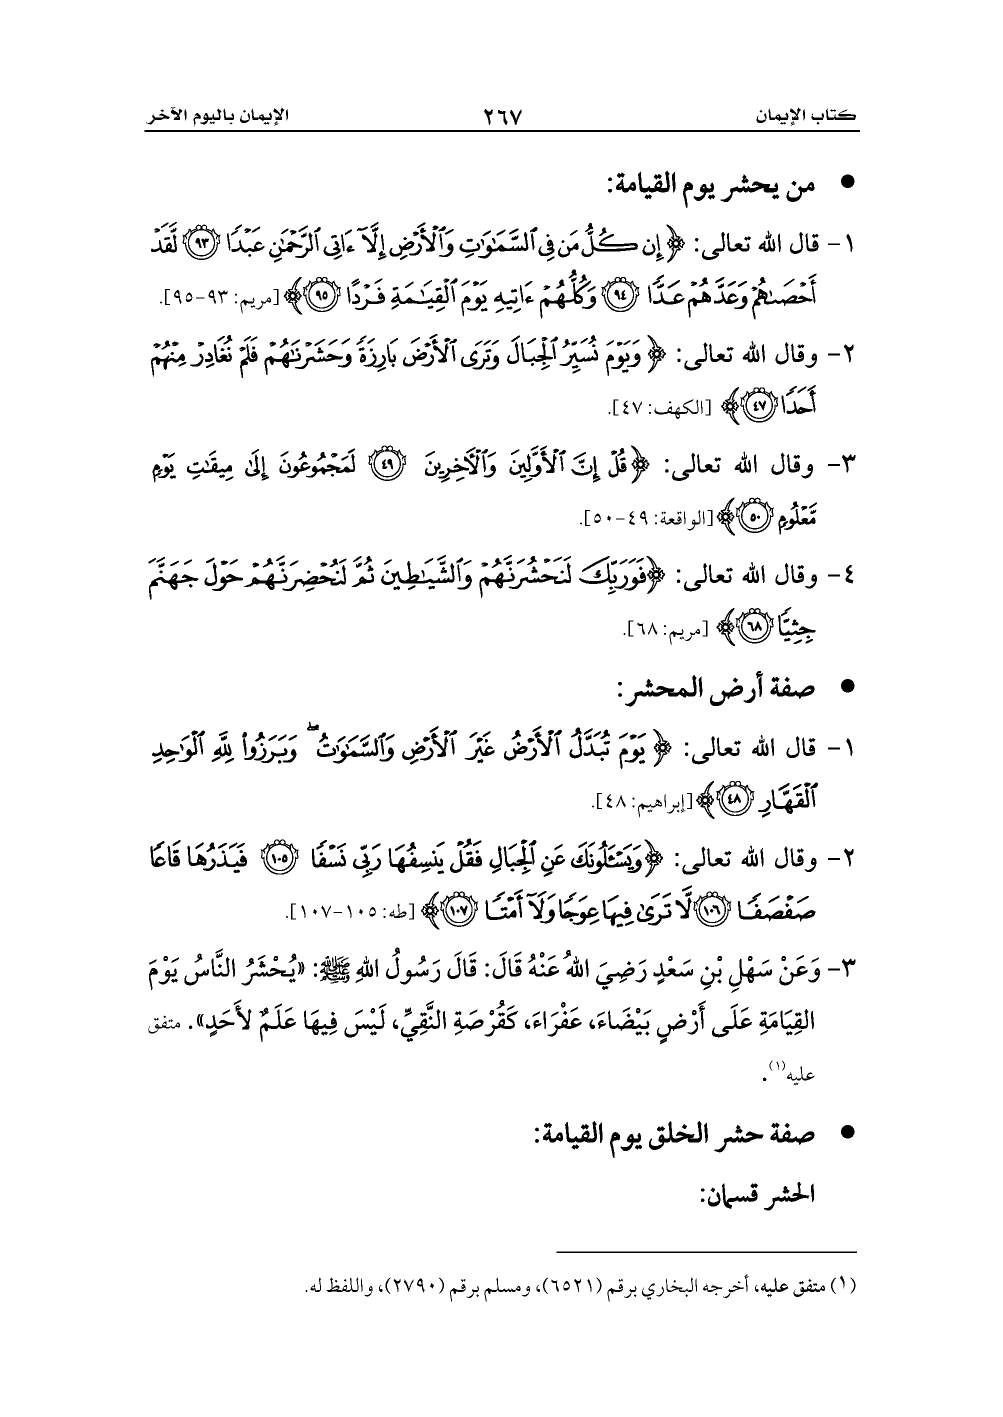 كتاب الإيمان ٢٦٧ الإيمان باليوم الآخر
● من يحشر يوم القيامة:
١- قال الله تعالى: ﴿إِن كُلُّ مَن فِي ٱلسَّمَٰوَٰتِ وَٱلۡأَرۡضِ إِلَّآ ءَاتِي ٱلرَّحۡمَٰنِ عَبۡدٗا ٩٣ لَّقَدۡ
أَحۡصَىٰهُمۡ وَعَدَّهُمۡ عَدّٗا ٩٤ وَكُلُّهُمۡ ءَاتِيهِ يَوۡمَ ٱلۡقِيَٰمَةِ فَرۡدًا ٩٥﴾ [مريم: ٩٣-٩٥].
٢- وقال الله تعالى: ﴿وَيَوۡمَ نُسَيِّرُ ٱلۡجِبَالَ وَتَرَى ٱلۡأَرۡضَ بَارِزَةٗ وَحَشَرۡنَٰهُمۡ فَلَمۡ نُغَادِرۡ مِنۡهُمۡ
أَحَدٗا ٤٧﴾ [الكهف: ٤٧].
٣- وقال الله تعالى: ﴿قُلۡ إِنَّ ٱلۡأَوَّلِينَ وَٱلۡأٓخِرِينَ ٤٩ لَمَجۡمُوعُونَ إِلَىٰ مِيقَٰتِ يَوۡمٖ
مَّعۡلُومٖ ٥٠﴾ [الواقعة: ٤٩-٥٠].
٤- وقال الله تعالى: ﴿فَوَرَبِّكَ لَنَحۡشُرَنَّهُمۡ وَٱلشَّيَٰطِينَ ثُمَّ لَنُحۡضِرَنَّهُمۡ حَوۡلَ جَهَنَّمَ
جِثِيّٗا ٦٨﴾ [مريم: ٦٨].
● صفة أرض المحشر:
١- قال الله تعالى: ﴿يَوۡمَ تُبَدَّلُ ٱلۡأَرۡضُ غَيۡرَ ٱلۡأَرۡضِ وَٱلسَّمَٰوَٰتُۖ وَبَرَزُواْ لِلَّهِ ٱلۡوَٰحِدِ
ٱلۡقَهَّارِ ٤٨﴾ [إبراهيم: ٤٨].
٢- وقال الله تعالى: ﴿وَيَسۡـَٔلُونَكَ عَنِ ٱلۡجِبَالِ فَقُلۡ يَنسِفُهَا رَبِّي نَسۡفٗا ١٠٥ فَيَذَرُهَا قَاعٗا
صَفۡصَفٗا ١٠٦ لَّا تَرَىٰ فِيهَا عِوَجٗا وَلَآ أَمۡتٗا ١٠٧﴾ [طه: ١٠٥-١٠٧].
٣- وَعَنْ سَهْلِ بْنِ سَعْدٍ رَضِيَ اللهُ عَنْهُ قَالَ: قَالَ رَسُولُ اللهِ ﷺ: «يُحْشَرُ النَّاسُ يَوْمَ
القِيَامَةِ عَلَى أَرْضٍ بَيْضَاءَ، عَفْرَاءَ، كَقُرْصَةِ النَّقِيِّ، لَيْسَ فِيهَا عَلَمٌ لأَحَدٍ». متفق
عليه(١).
● صفة حشر الخلق يوم القيامة:
الحشر قسمان:
(١) متفق عليه، أخرجه البخاري برقم (٦٥٢١)، ومسلم برقم (٢٧٩٠)، واللفظ له.